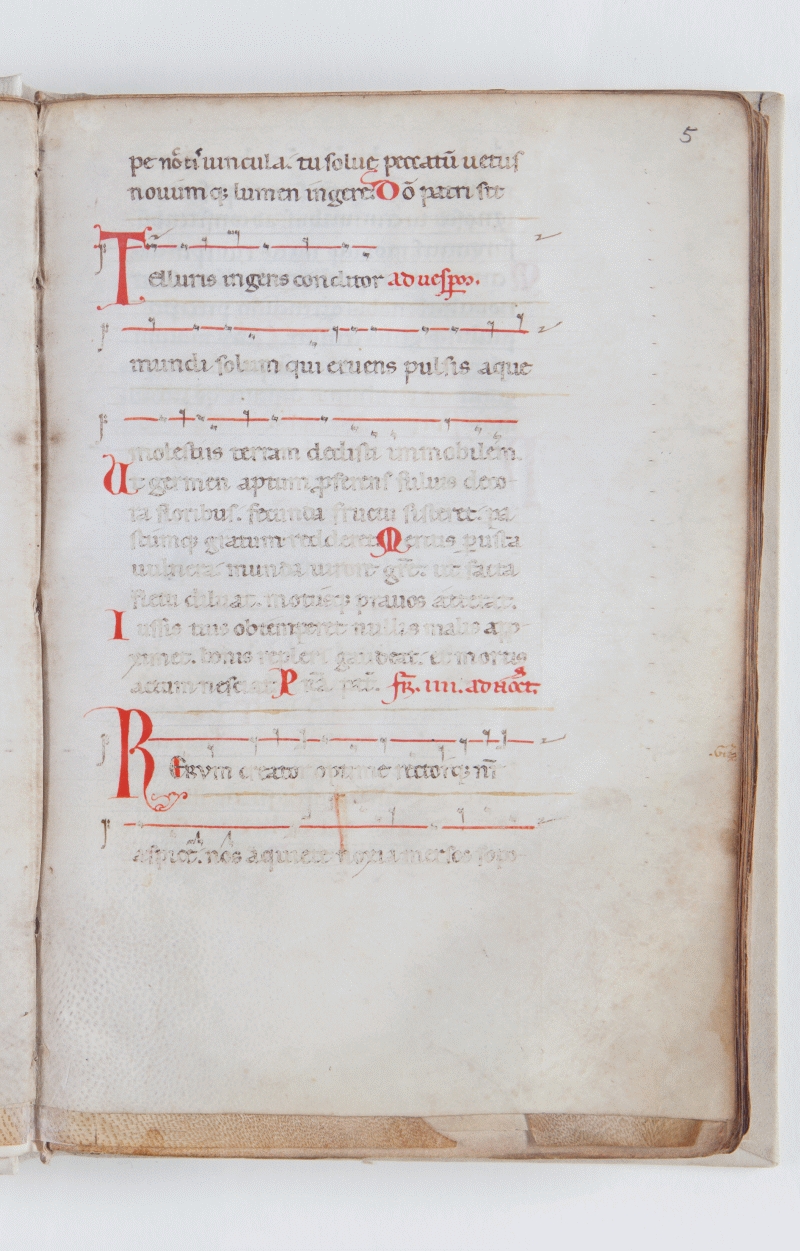 5
pe nr̄i uincula. tu solue peccatū uetus
nouumq; lumen ingere. Dō patri sit
Telluris ingens conditor ad uesperos.
mundi solum qui eruens pulsis aque
molestiis terram dedisti immobilem.
Ut germen aptum ꝓferens fuluis deco-
ra floribus. fecunda fructu sisteret. pa
stumq; gratum redderet. Mentis ꝑusta
uulnera munda uirore gr̄e. ut facta
fletu diluat. motusq; prauos atterat.
Iussis tuis obtemperet nullis malis app-
ximet. bonis repleri gaudeat. et mortis
actum nesciat. P
fr̄. iiii. ad noct.
Rerum creator optime rectorq; nr̄
aspice. nos a quiete noxia mersos sopo-